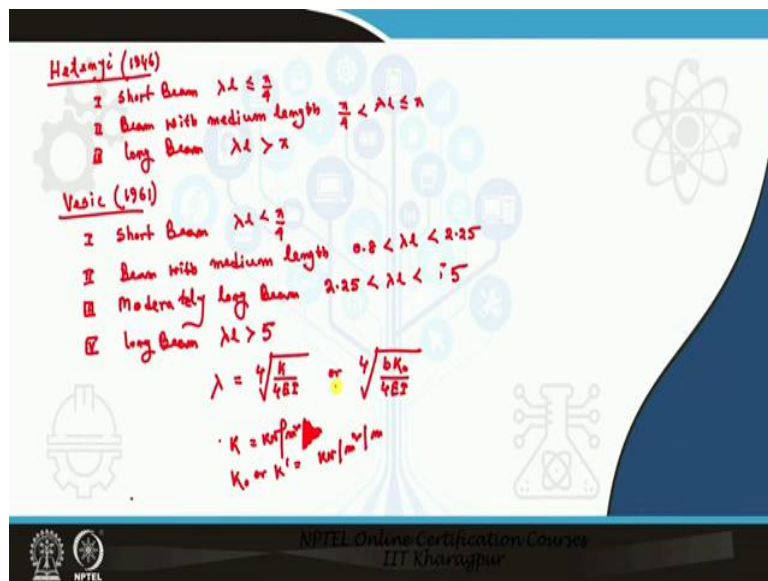 Hetenyi (1946)
I Short Beam λl ≤ π/4
II Beam with medium length π/4 < λl ≤ π
III long Beam λl > π
Vesic (1961)
I Short Beam λl < π/4
II Beam with medium length 0.8 < λl < 2.25
III Moderately long Beam 2.25 < λl < 5
IV long Beam λl > 5
λ = ∜(K/4EI) or ∜(bK₀/4EI)
K = kN/m²
K₀ or K' = kN/m²/m
NPTEL Online Certification Courses
IIT Kharagpur
NPTEL